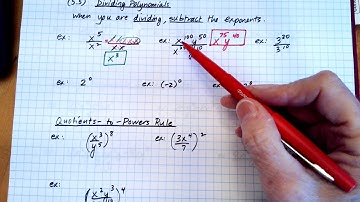 (5.5) Dividing Polynomials
When you are dividing, subtract the exponents.
ex: x⁵/x² x³ ex: x¹⁰⁰y⁵⁰ x⁷⁵y⁴⁰ ex: 3²⁰/3¹⁰
ex: 2⁰ ex: (-2)⁰
Quotients-to-Powers Rule
ex: (x³/y⁵)⁸ ex: (3x⁴/7)²
ex:
(x²y³)⁴